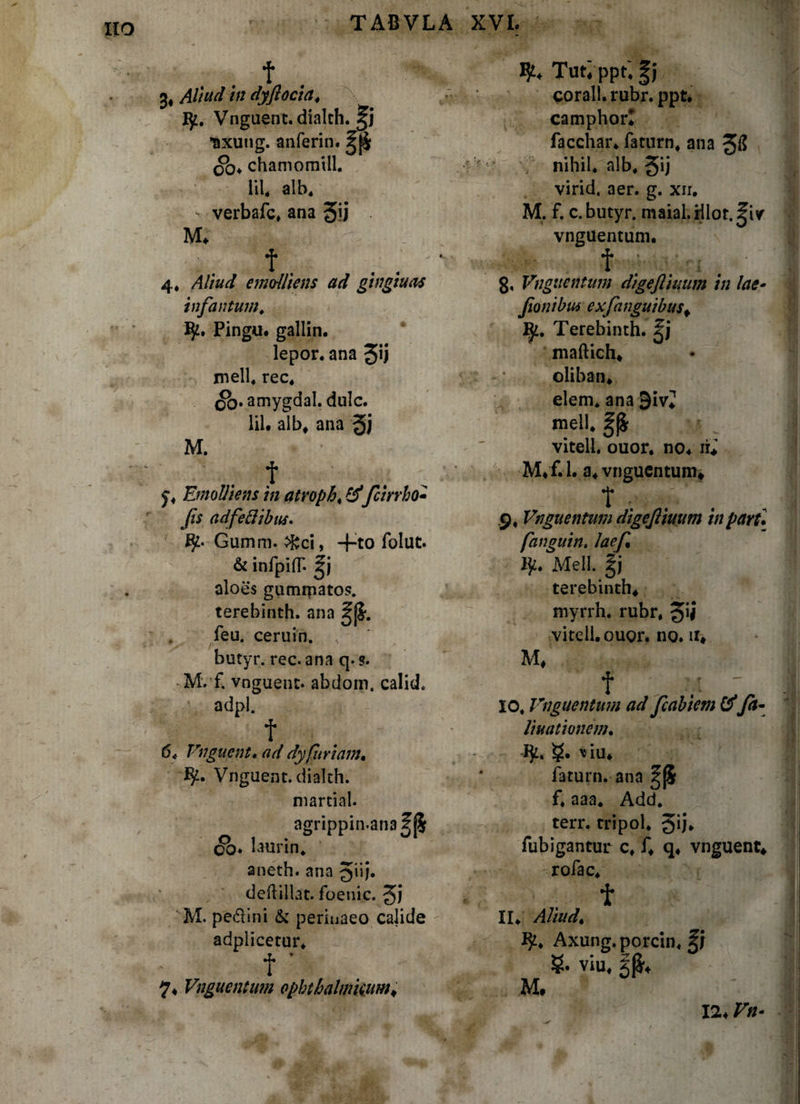 110
TABVLA XVI.
†
3. Aliud in dyſtocia.
℞. Vnguent. dialth. ℥j
axung. anſerin. ℥ß
ꝏ. chamomill.
lil. alb.
verbaſc. ana ʒij
M.
†
4. Aliud emolliens ad gingiuas
infantum.
℞. Pingu. gallin.
lepor. ana ʒij
mell. rec.
ꝏ. amygdal. dulc.
lil. alb. ana ʒj
M.
†
5. Emolliens in atroph. & ſcirrho-
ſis adfectibus.
℞. Gumm. ✶ci, +to ſolut.
& inſpiſſ. ℥j
aloës gummatos.
terebinth. ana ℥ß.
ſeu. ceruin.
butyr. rec. ana q. s.
M. f. vnguent. abdom. calid.
adpl.
†
6. Vnguent. ad dyſuriam.
℞. Vnguent. dialth.
martial.
agrippin. ana ℥ß
ꝏ. laurin.
aneth. ana ʒiij.
deſtillat. foenic. ʒj
M. pectini & perinaeo calide
adplicetur.
†
7. Vnguentum ophthalmicum.
℞. Tut. ppt. ℥j
corall. rubr. ppt.
camphor.
ſacchar. ſaturn. ana ʒß
nihil. alb. ʒij
virid. aer. g. xii.
M. f. c. butyr. maial. illot. ℥iv
vnguentum.
†
8. Vnguentum digeſtiuum in lae-
ſionibus exſanguibus.
℞. Terebinth. ℥j
maſtich.
oliban.
elem. ana ℈iv.
mell. ℥ß
vitell. ouor. no. ii.
M. f. l. a. vnguentum.
†
9. Vnguentum digeſtiuum in part.
ſanguin. laeſ.
℞. Mell. ℥j
terebinth.
myrrh. rubr. ʒij
vitell. ouor. no. ii.
M.
†
10. Vnguentum ad ſcabiem & ſa-
liuationem.
℞. ☿. viu.
ſaturn. ana ℥ß
f. aaa. Add.
terr. tripol. ʒij.
ſubigantur c. ſ. q. vnguent.
roſac.
†
11. Aliud.
℞. Axung. porcin. ℥j
☿. viu. ℥ß.
M.
12. Vn-